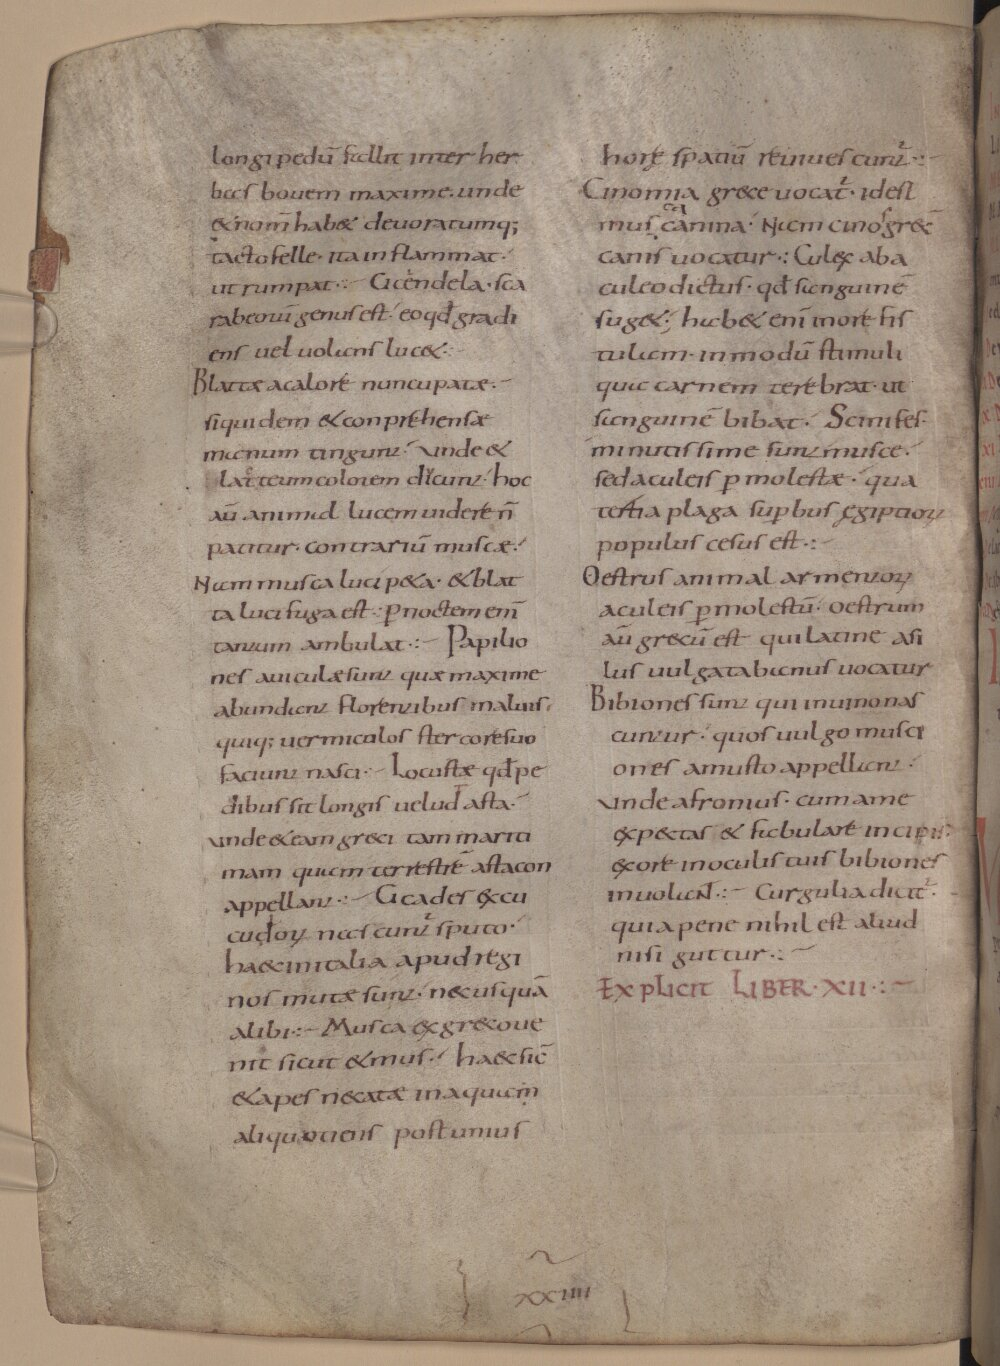 longipedū fallit inter her
bas bovem maxime. unde
& nom̄ hab& devoratumq;
tactofelle· ita inflammat·
ut rumpat·:- Cicendela· sca
rabeorū genus est· eo qđ gradi
ens vel volans luc&·:-
Blattæ a calore nuncupatæ·-
siquidem & conprehensæ
manum tingunt· unde &
latteum colorem dicunt· hoc
aū animal lucem videre n̄
patitur· contrariū muscæ·
Nam musca luci p&a· & blat
ta lucifuga est·: p noctem enī
tantum ambulat·:- Papilio
nes aviculæ sunt quæ maxime
abundant florentibus malvis·
quiq; vermiculos stercore suo
faciunt nasci·- Locustæ qđ pe
dibus sit longis velud asta·
unde & eam greci tam mariti
mam quam terrestrē astacon
appellant·:- Cicades ex cu
culoꝝ nascunt̄ sputo·
hæc in italia apud regi
nos mutæ sunt· nec usquā
alibi·:- Musca ex greco ve
nit sicut & mus· hæc sic̄
& apes necatæ in aquam
aliquotiens post unius
horę spatiū revivescunt̄·:-
Cinomia grece vocat̄· id est
mus canina· Nam cinos grec̄
canis vocatur·: Culex ab a
culeo dictus· qđ sanguinē
sug&; hab& enī in ore fis
tulam· in modū stimuli
qua carnem terebrat· ut
sanguinē bibat· Scinifes·
minutissime sunt musce·
sed aculeis p molestæ· qua
tertia plaga supbus egiptioꝝ
populus cesus est·:-
Oestrus animal armentoꝝ
aculeis p molestū· oestrum
aū grecū est qui latine asi
lus vulga tabanus vocatur
Bibiones sunt qui in vino nas
cuntur· quos vulgo musci
ones a musto appellant·
unde afronius· cum a me
expectas & fabulare incipis·
ex ore in oculis tuis bibiones
involant·:- Curgulia dicit̄·
quia pene nihil est aliud
nisi guttur·:-
Explicit LIBER· XII·:-
XXIIII